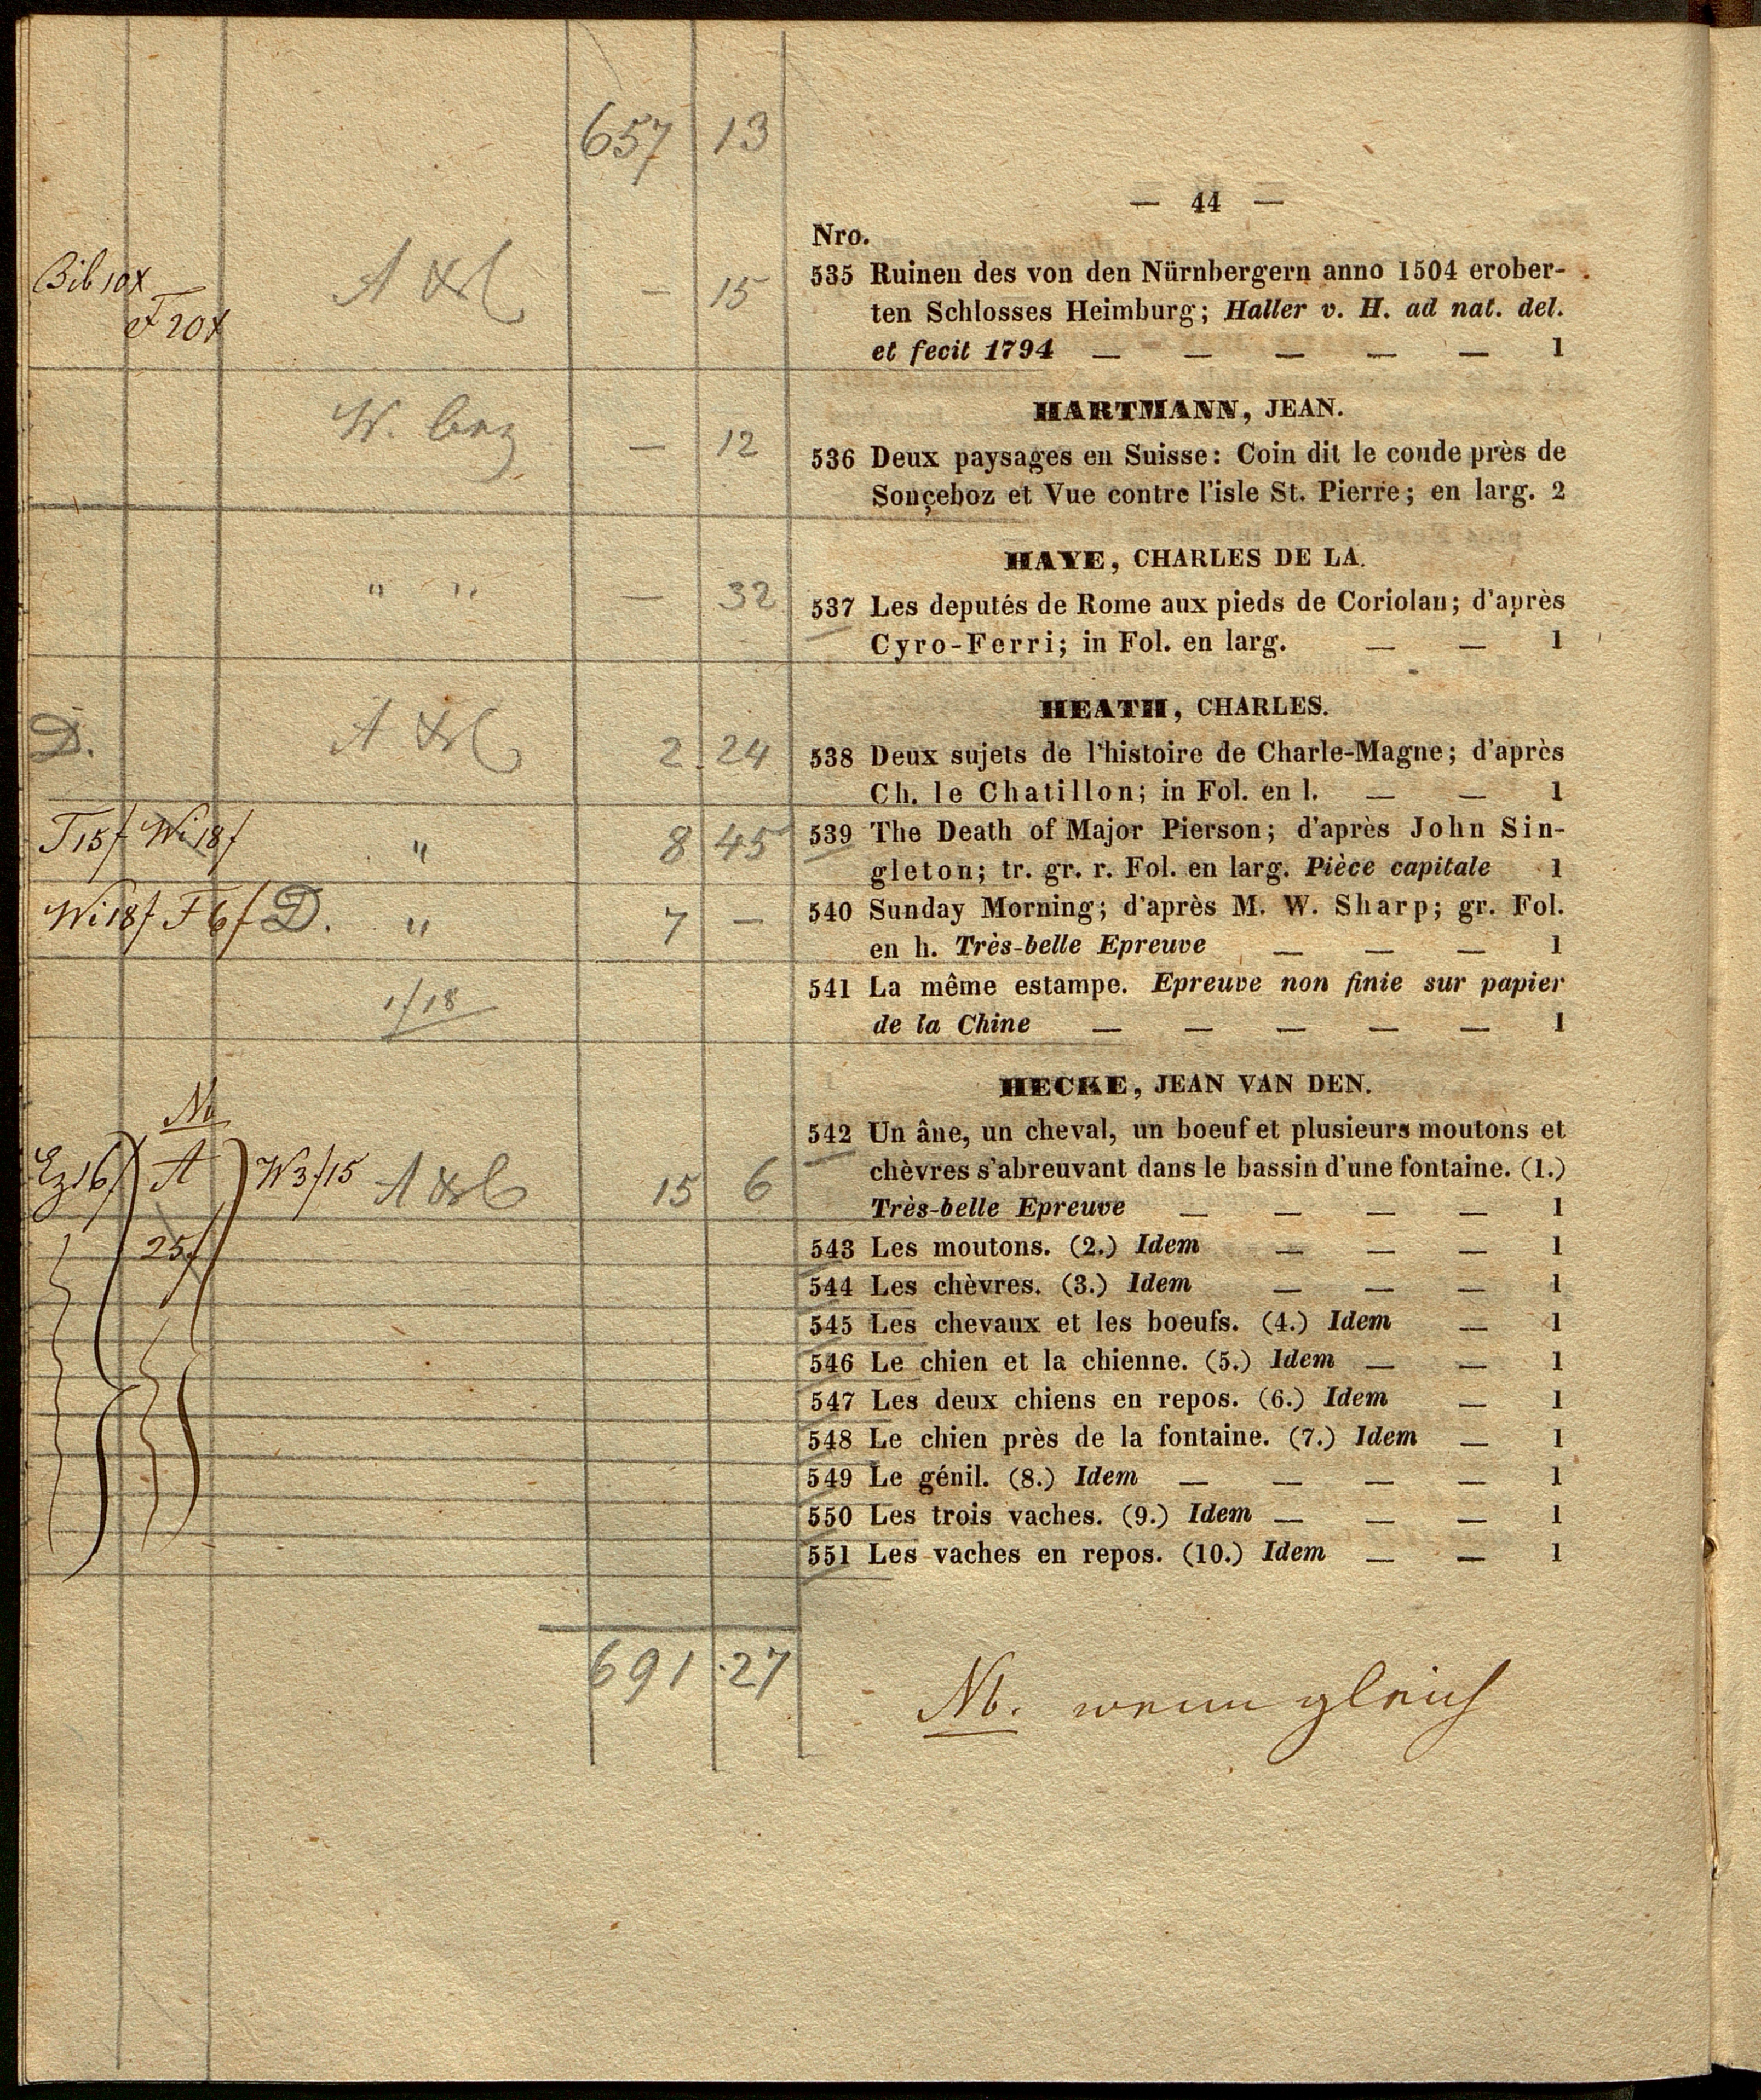 657 13
— 44 —
Nro.
Bib 10x
F 20x
— 15
535 Ruinen des von den Nürnbergern anno 1504 erober-
ten Schlosses Heimburg; Haller v. H. ad nat. del.
et fecit 1794 — — — — — 1
HARTMANN, JEAN.
W. — 12
536 Deux paysages en Suisse: Coin dit le coude près de
Sonçeboz et Vue contre l'isle St. Pierre; en larg. 2
HAYE, CHARLES DE LA.
" " — 32
537 Les deputés de Rome aux pieds de Coriolan; d'après
Cyro-Ferri; in Fol. en larg. — — 1
HEATH, CHARLES.
D. 2.24
538 Deux sujets de l'histoire de Charle-Magne; d'après
Ch. le Chatillon; in Fol. en l. — — 1
T 15f Wi 18f " 8 45
539 The Death of Major Pierson; d'après John Sin-
gleton; tr. gr. r. Fol. en larg. Pièce capitale 1
Wi 18f F 6f D. " 7 —
540 Sunday Morning; d'après M. W. Sharp; gr. Fol.
en h. Très-belle Epreuve — — — 1
1/18
541 La même estampe. Epreuve non finie sur papier
de la Chine — — — — — 1
HECKE, JEAN VAN DEN.
Nb
A W3/15 15 6
25f
542 Un âne, un cheval, un boeuf et plusieurs moutons et
chèvres s'abreuvant dans le bassin d'une fontaine. (1.)
Très-belle Epreuve — — — — 1
543 Les moutons. (2.) Idem — — — 1
544 Les chèvres. (3.) Idem — — — 1
545 Les chevaux et les boeufs. (4.) Idem — 1
546 Le chien et la chienne. (5.) Idem — — 1
547 Les deux chiens en repos. (6.) Idem — 1
548 Le chien près de la fontaine. (7.) Idem — 1
549 Le génil. (8.) Idem — — — — 1
550 Les trois vaches. (9.) Idem — — — 1
551 Les vaches en repos. (10.) Idem — — 1
691.27
Nb. wenn gleich